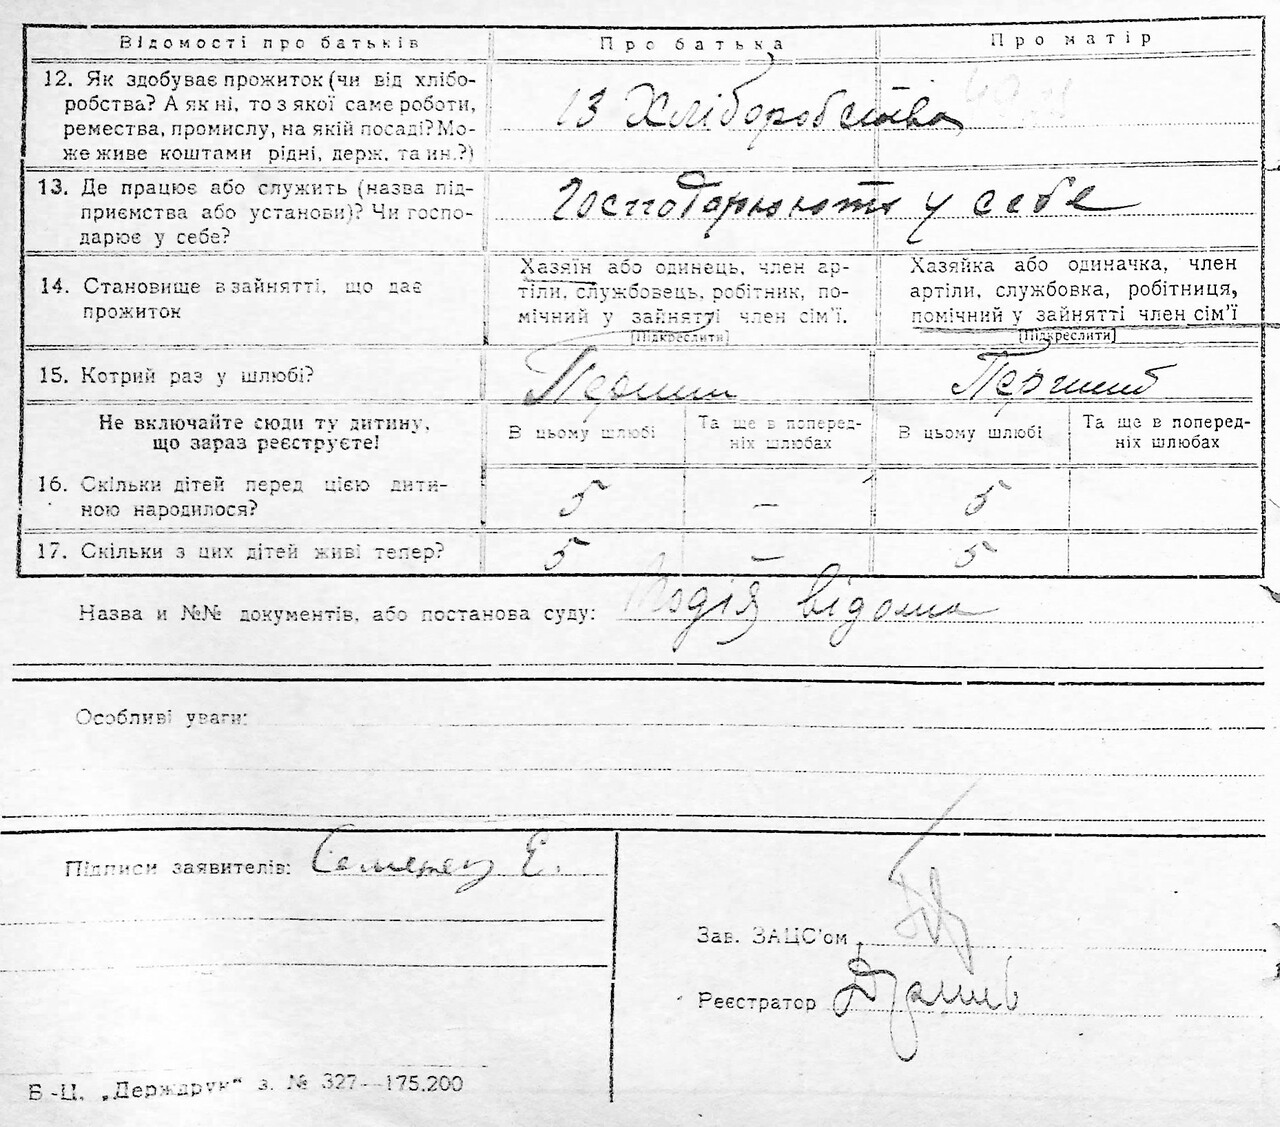 Відомості про батьків Про батька Про матір
12. Як здобуває прожиток (чи від хлібо-
робства? А як ні, то з якої саме роботи,
ремества, промислу, на якій посаді? Мо-
же живе коштами рідні, держ. та ин.?)
Із Хліборобства
13. Де працює або служить (назва під-
приємства або установи)? Чи госпо-
дарює у себе?
Господарюють у себе
14. Становище в занятті, що дає
прожиток
Хазяїн або одинець, член ар-
тіли, службовець, робітник, по-
мічний у зайнятті член сім'ї.
[Підкреслити]
Хазяйка або одиначка, член
артіли, службовка, робітниця,
помічний у зайнятті член сім'ї
[Підкреслити]
15. Котрий раз у шлюбі? Перший Перший
Не включайте сюди ту дитину,
що зараз реєструєте!
В цьому шлюбі
Та ще в поперед-
ніх шлюбах
В цьому шлюбі
Та ще в поперед-
ніх шлюбах
16. Скільки дітей перед цією дити-
ною народилося?
5 — 5
17. Скільки з цих дітей живі тепер? 5 — 5
Назва и №№ документів, або постанова суду: Подія відома
Особливі уваги:
Підписи заявителів: Семенец Е.
Зав. ЗАЦС'ом
Реєстратор
Б-Ц. „Держдрук" з. № 327—175.200